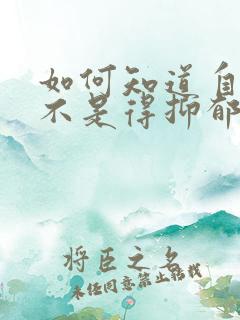 如何知道自
不是得抑郁
将臣之名
未经同意禁止转载